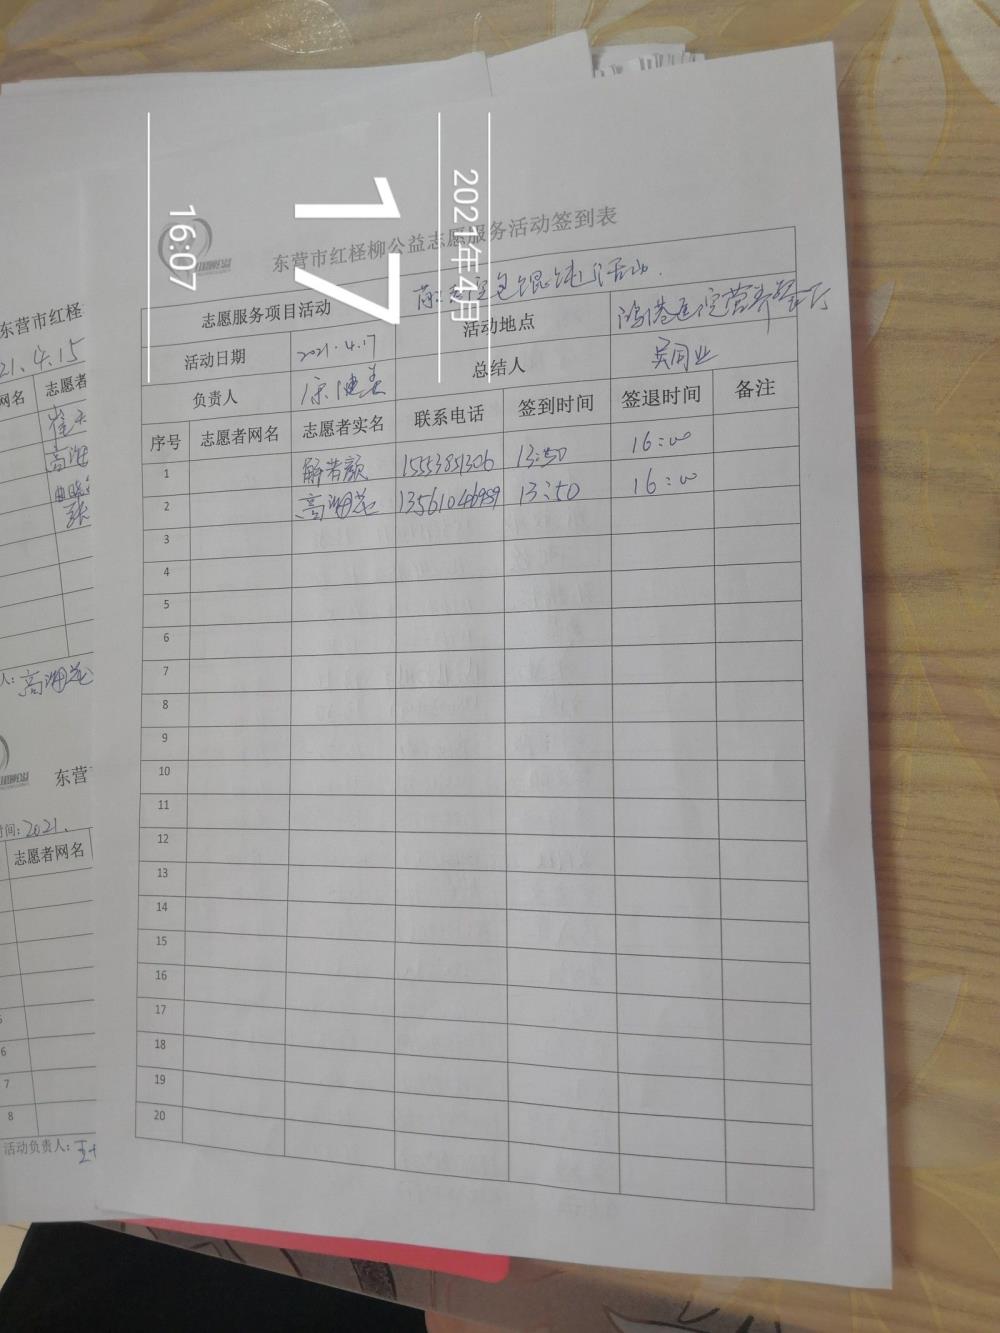 2021年4月
17
16:07
东营市红柽柳公益志愿服务活动签到表
志愿服务项目活动
活动日期 2021.4.17 活动地点
负责人 总结人 吴同业
序号 志愿者网名 志愿者实名 联系电话 签到时间 签退时间 备注
1 15553851306 13:50 16:00
2 高湘芝 13561046989 13:50 16:00
3
4
5
6
7
8
9
10
11
12
13
14
15
16
17
18
19
20
东营市红柽
21.4.15
网名 志愿者
高湘
人: 高湘芝
东营
时间: 2021.
志愿者网名
6
7
8
活动负责人: 王